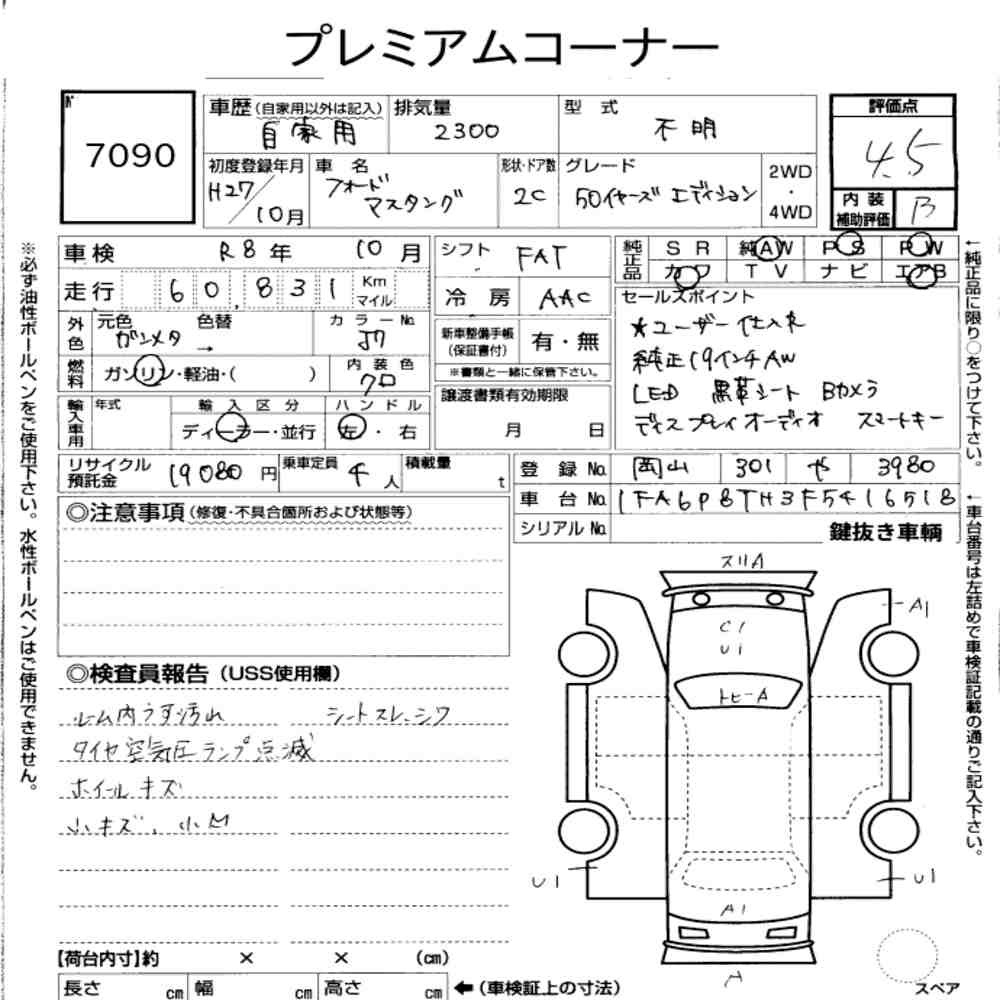 プレミアムコーナー
№
7090
車歴(自家用以外は記入)
自家用
排気量
2300
型 式
不明
評価点
4.5
内装補助評価
B
初度登録年月
H27/10月
車 名
フォード
マスタング
形状・ドア数
2C
グレード
50イヤーズ エディション
2WD
・
4WD
車検 R8年 10月
走行 60,831 Km マイル
シフト FAT
冷房 AAC
純正品 SR 純AW PS PW
カワ TV ナビ エアB
セールスポイント
★ユーザー仕入れ
純正19インチAW
LED 黒革シート Bカメラ
ディスプレイオーディオ スマートキー
外色 元色 色替 カラーNo.
ガンメタ → J7
燃料 ガソリン・軽油・( )
内装色
クロ
新車整備手帳(保証書付) 有・無
※書類と一緒に保管下さい。
輸入車用 年式 輸入区分 ハンドル
ディーラー・並行 左・右
譲渡書類有効期限
月 日
リサイクル預託金 19080円 乗車定員 4人 積載量 t
登録No. 岡山 301 や 3980
車台No. 1FA6P8TH3F5416518
シリアルNo.
鍵抜き車輌
◎注意事項(修復・不具合箇所および状態等)
◎検査員報告(USS使用欄)
ルーム内うす汚れ シートスレ・シワ
タイヤ空気圧ランプ点滅
ホイールキズ
小キズ、小凹
スリA
A1
C1
U1
トビーA
U1
U1
A1
A
スペア
【荷台内寸】約 × × (cm)
長さ cm 幅 cm 高さ cm ←(車検証上の寸法)
※必ず油性ボールペンをご使用下さい。水性ボールペンはご使用できません。
←純正品に限り○をつけて下さい。
←車台番号は左詰めで車検証記載の通りご記入下さい。